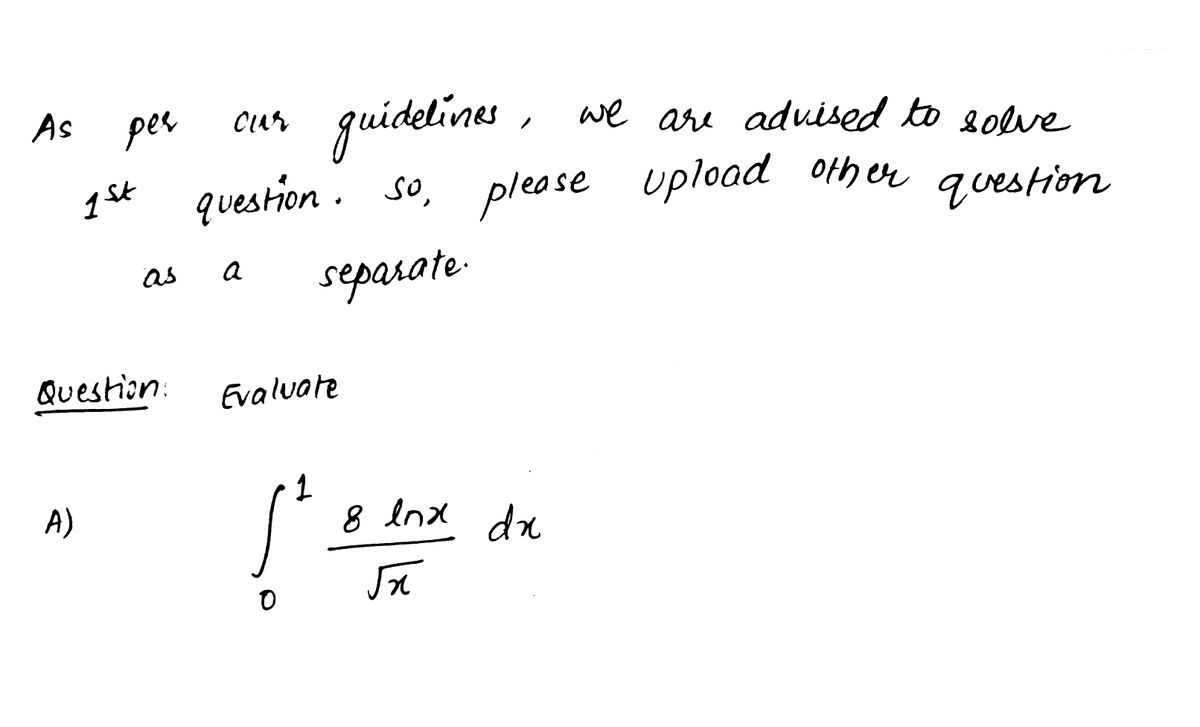 As per our guidelines, we are advised to solve
1st question. so, please upload other question
as a separate.
Question: Evaluate
A) ∫₀¹ 8 lnx / √x dx